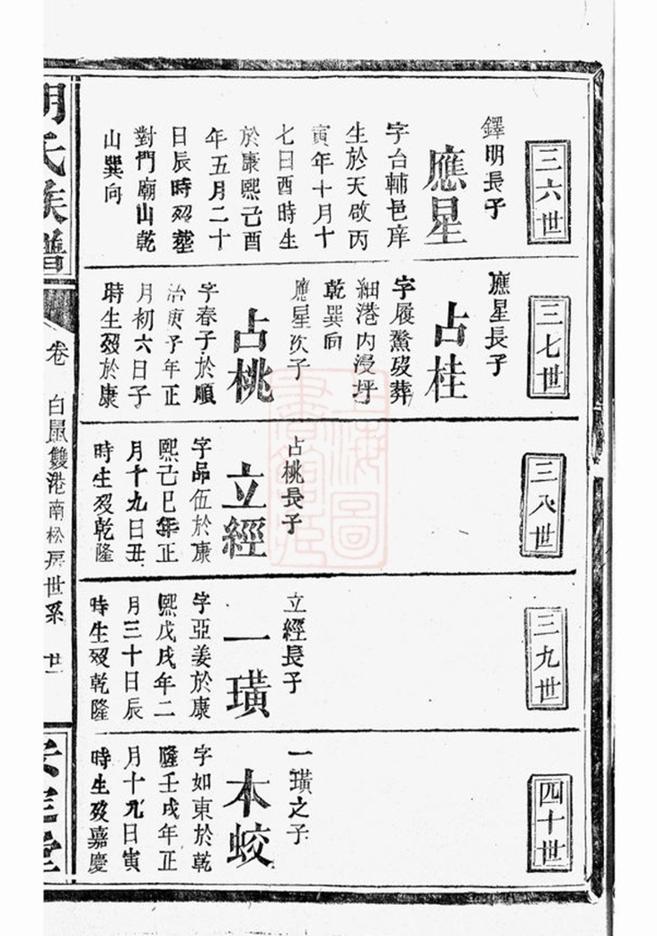 三六世
鐸明長子
應星
字台輔邑庠
生於天啟丙
寅年十月十
七日酉時生
於康熙己酉
年五月二十
日辰時歿葬
對門廟山乾
山巽向
三七世
應星長子
占桂
字履鰲歿葬
細港内浸坪
乾巽向
應星次子
占桃
字春子於順
治庚子年正
月初六日子
時生歿於康
三八世
占桃長子
立經
字品伍於康
熙己巳年正
月十九日丑
時生歿乾隆
三九世
立經長子
一璜
字亞姜於康
熙戊戌年二
月三十日辰
時生歿乾隆
四十世
一璜之子
木蛟
字如東於乾
隆壬戌年正
月十九日寅
時生歿嘉慶
胡氏族譜
卷 白鼠雙港南松房世系 廿
安定堂
上海圖書館藏